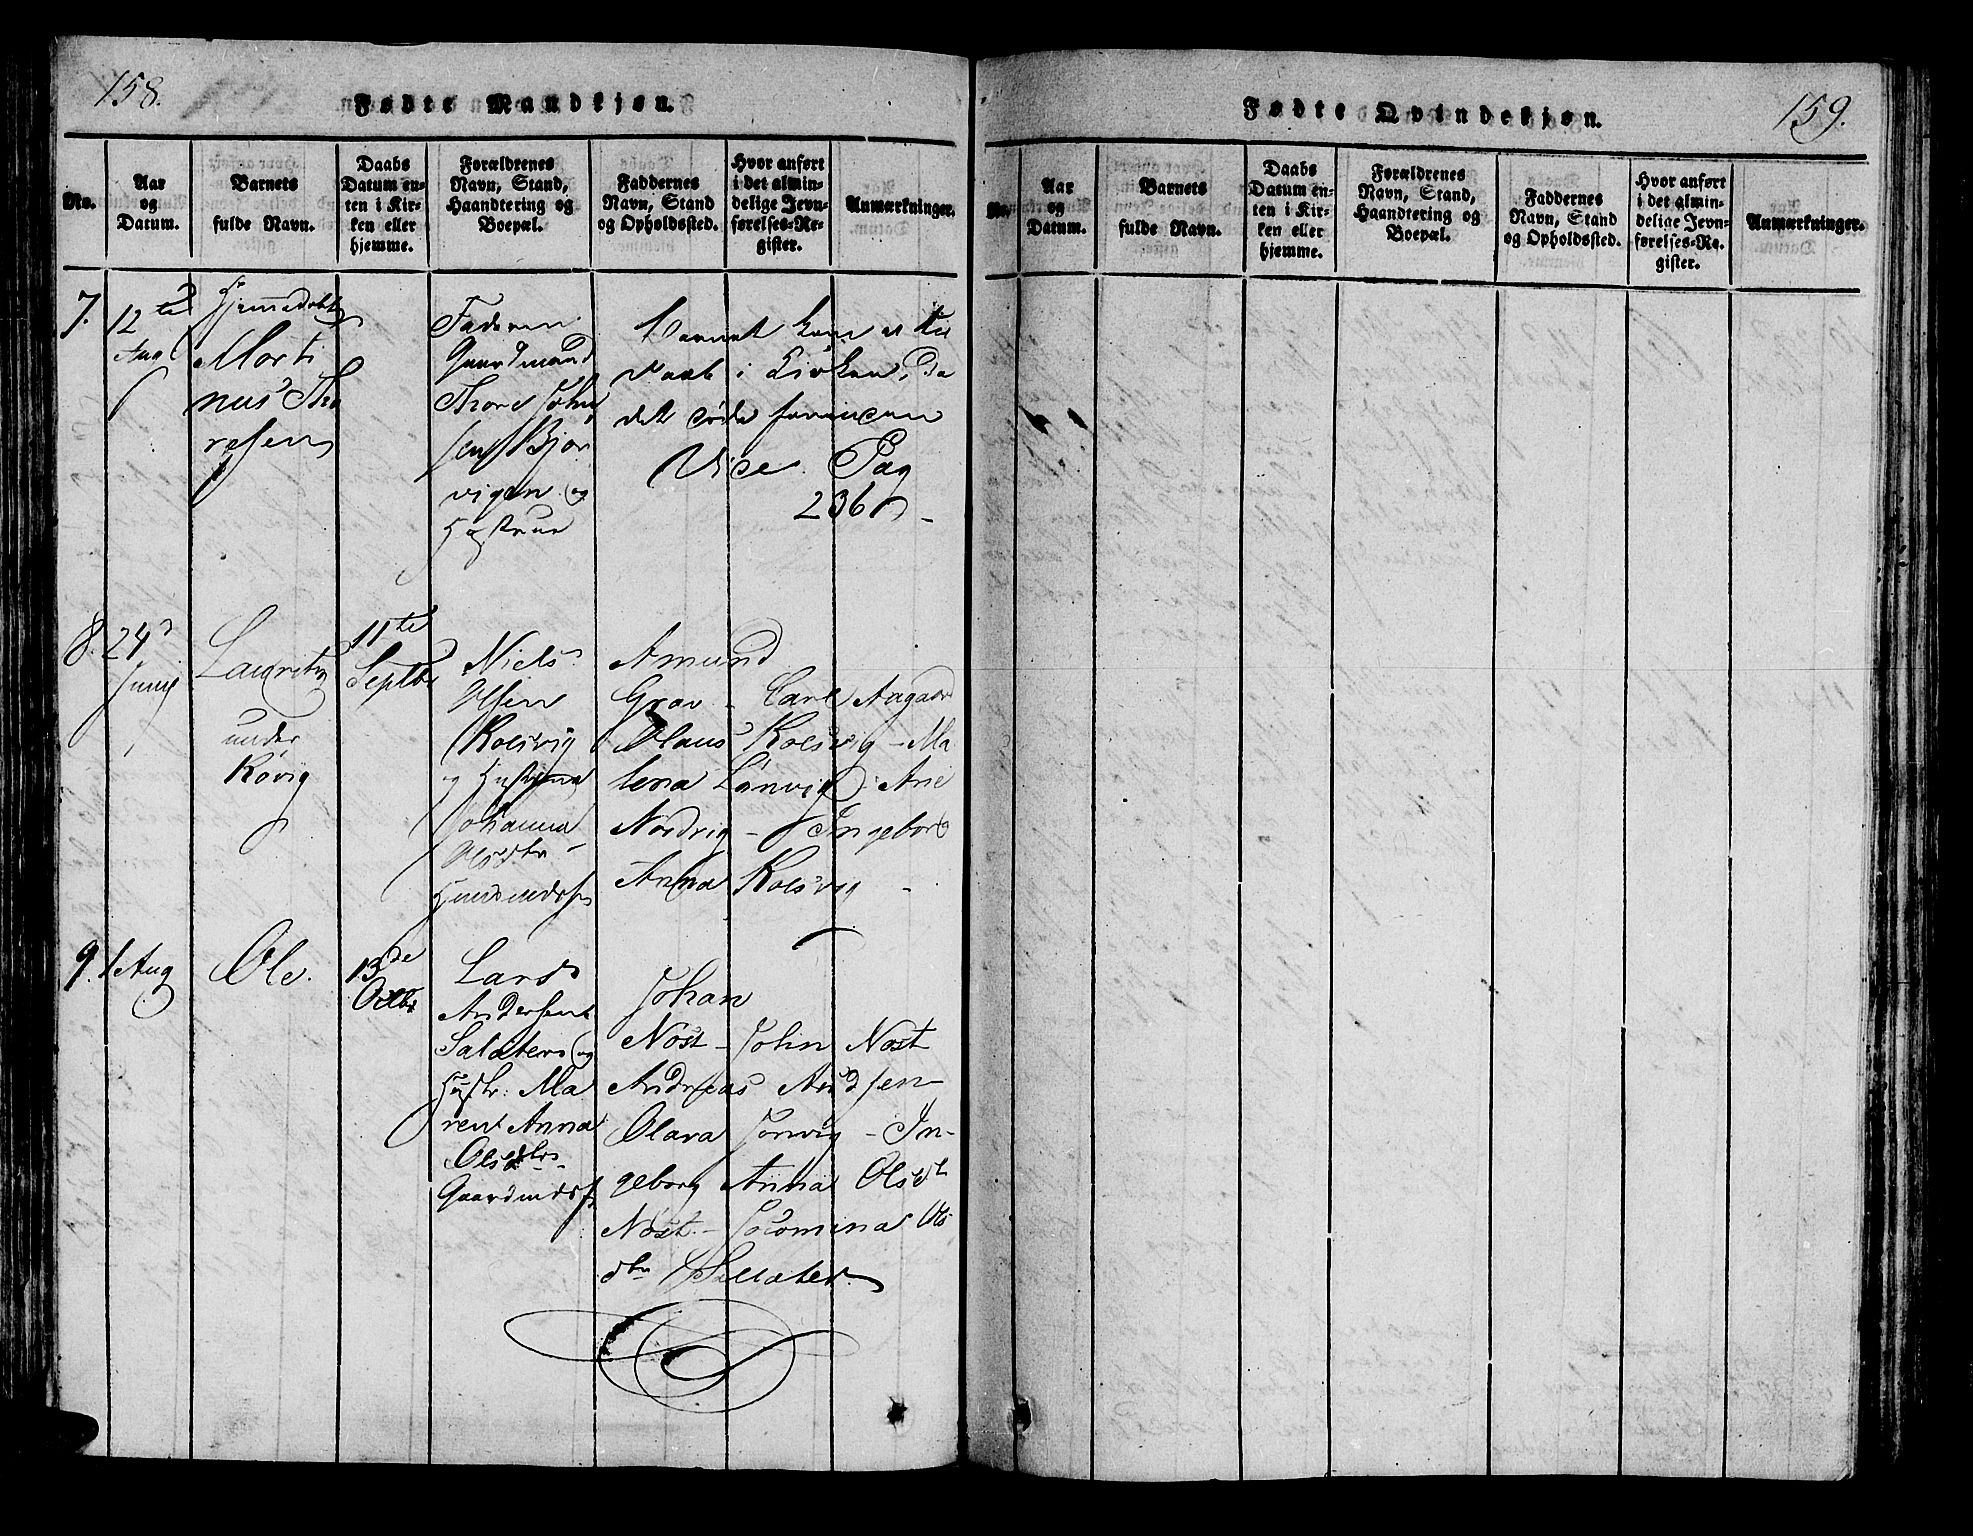 158.
Fødte Mandkjøn.
No.
Aar
og
Datum.
Barnets
fulde Navn.
Daabs
Datum en-
ten i Kir-
ken eller
hjemme.
Forældrenes
Navn, Stand,
Haandtering og
Boepæl.
Faddernes
Navn, Stand
og Opholdssted.
Hvor anført
i det almin-
delige Jevn-
førelses-Re-
gister.
Anmærkninger.
7.
12te
Aug
Hjemmedøbt
Morti
nus Tho
resen
Faderen
Gaardmand
Thore John
sen Bjør
vigen og
Hustrue
Barnet kom ei til
Daab i Kirken, da
det døde
Vice Pag
236
8.
24
Junij
Lauritz
under
Røvig
11te
Septbr
Niels
Olsen
Kolsvig
og Hustrue
Johanna
Olsdtr
Huusmdsf
Amund
Grav - Carl Aagaard
Olaus Kolsvig - Ma
lena Lønvig - Ane
Nordvig - Ingebor
Anna Kolsvig -
9.
1te Aug
Ole.
13de
Octbr
Lars
Andersen
Salater og
Hustr: Ma
ren Anna
Olsdtr
Gaardmdsf
Johan
Nost - John Nost
Andreas Andsen -
Olava Jorvig - In-
geborg Anna Olsdt
Nost - Jocomina Ols
dtr Sallater
159.
Fødte Qvindekjøn.
No.
Aar
og
Datum.
Barnets
fulde Navn.
Daabs
Datum en-
ten i Kir-
ken eller
hjemme.
Forældrenes
Navn, Stand,
Haandtering og
Boepæl.
Faddernes
Navn, Stand
og Opholdssted.
Hvor anført
i det almin-
delige Jevn-
førelses-Re-
gister.
Anmærkninger.